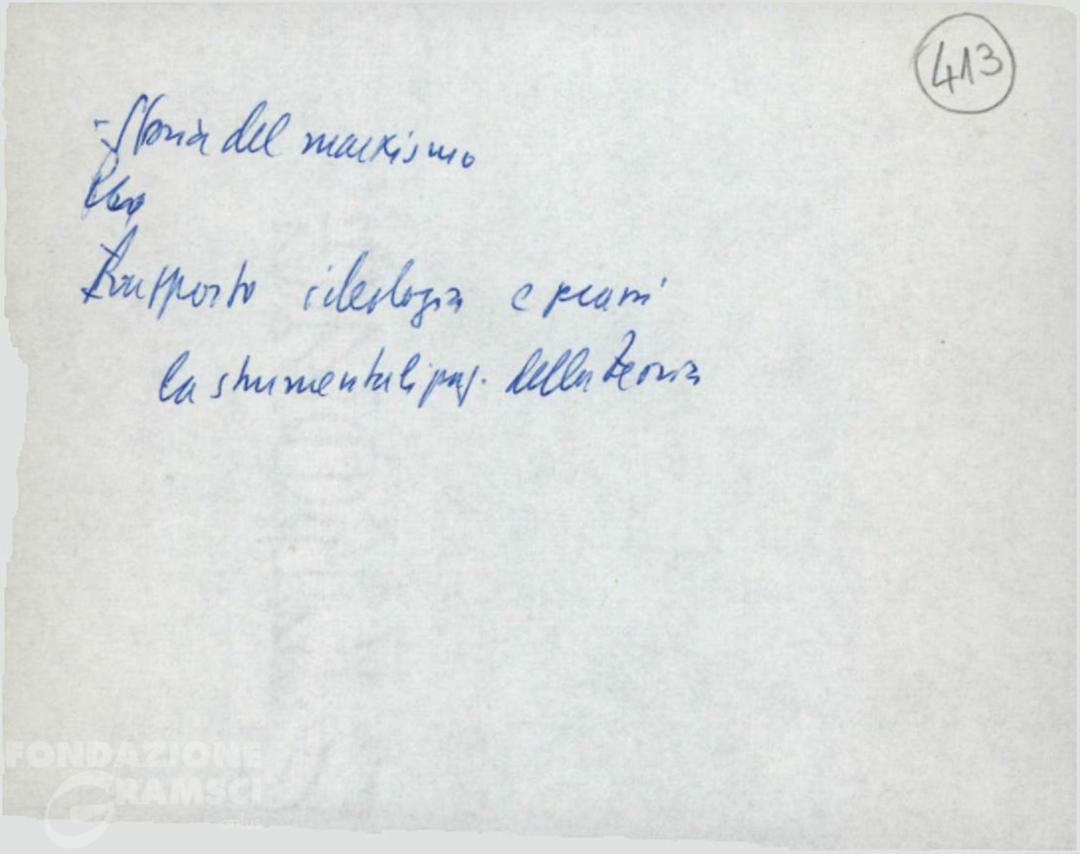 413
- Storia del marxismo
Rapporto ideologia e prassi
la strumentalizzaz. della teoria
FONDAZIONE
GRAMSCI